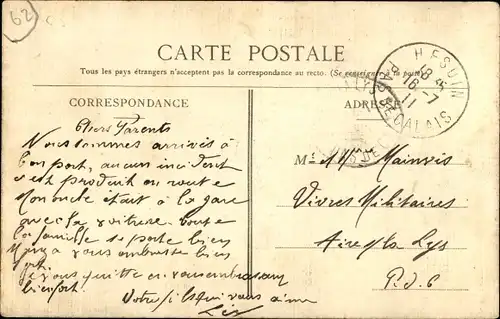 62
CARTE POSTALE
Tous les pays étrangers n'acceptent pas la correspondance au recto. (Se renseigner à la poste)
HESDIN
18 45
16-7
11
PAS DE CALAIS
CORRESPONDANCE
ADRESSE
Chers Parents
Nous sommes arrivés à
bon port, aucun incident
s'est produit en route
Mon oncle était à la gare
avec la voiture. Toute
la famille se porte bien
vous embrasse bien
vous quitte en vous embrassant
bien fort.
Votre fils qui vous aime
M
Mainvis
Vivres Militaires
Aire s/la Lys
P.d.C